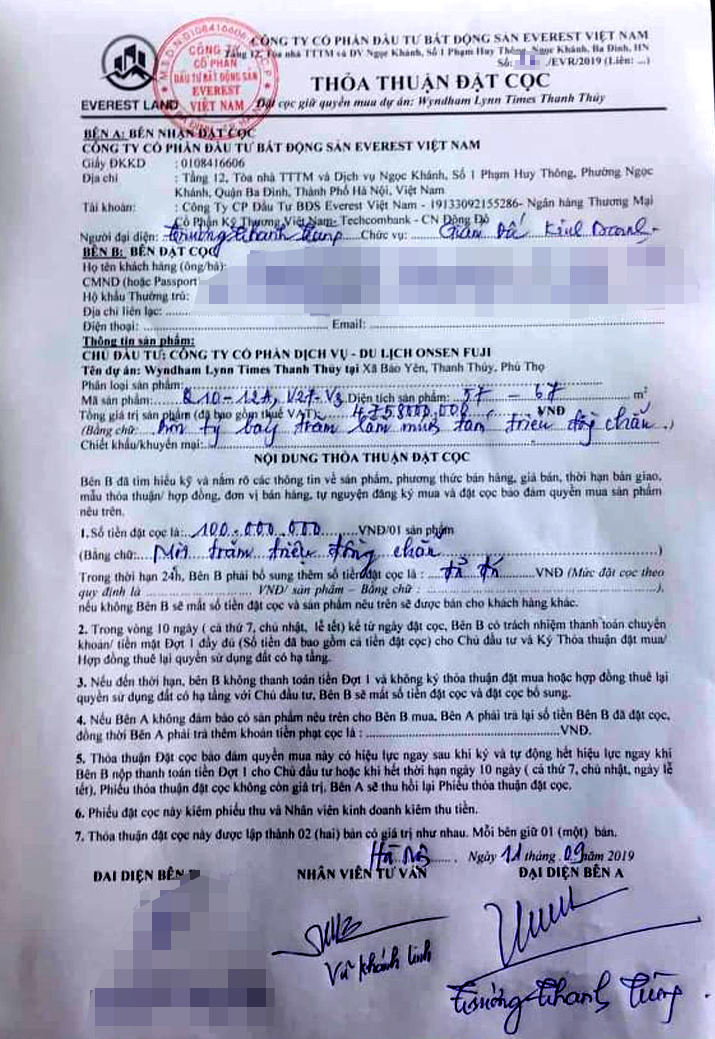 CÔNG TY CỔ PHẦN ĐẦU TƯ BẤT ĐỘNG SẢN EVEREST VIỆT NAM
Tầng 12, Tòa nhà TTTM và DV Ngọc Khánh, Số 1 Phạm Huy Thông, Ngọc Khánh, Ba Đình, HN
Số: /EVR/2019 (Liên: ...)
M.S.D.N:0108416606
CÔNG TY
CỔ PHẦN
ĐẦU TƯ BẤT ĐỘNG SẢN
EVEREST
VIỆT NAM
EVEREST LAND
THỎA THUẬN ĐẶT CỌC
Đặt cọc giữ quyền mua dự án: Wyndham Lynn Times Thanh Thủy
BÊN A: BÊN NHẬN ĐẶT CỌC
CÔNG TY CỔ PHẦN ĐẦU TƯ BẤT ĐỘNG SẢN EVEREST VIỆT NAM
Giấy ĐKKD : 0108416606
Địa chỉ : Tầng 12, Tòa nhà TTTM và Dịch vụ Ngọc Khánh, Số 1 Phạm Huy Thông, Phường Ngọc
Khánh, Quận Ba Đình, Thành Phố Hà Nội, Việt Nam
Tài khoản: : Công Ty CP Đầu Tư BĐS Everest Việt Nam - 19133092155286- Ngân hàng Thương Mại
Cổ Phần Kỹ Thương Việt Nam- Techcombank - CN Đông Đô
Người đại diện: Trương Thanh Tùng Chức vụ: Giám Đố Kinh Doanh
BÊN B: BÊN ĐẶT CỌC
Họ tên khách hàng (ông/bà):
CMND (hoặc Passport
Hộ khẩu Thường trú:
Địa chỉ liên lạc:
Điện thoại: Email:
Thông tin sản phẩm:
CHỦ ĐẦU TƯ: CÔNG TY CỔ PHẦN DỊCH VỤ - DU LỊCH ONSEN FUJI
Tên dự án: Wyndham Lynn Times Thanh Thủy tại Xã Bảo Yên, Thanh Thủy, Phú Thọ
Phân loại sản phẩm:
Mã sản phẩm: 10-12A, V27-V3 Diện tích sản phẩm: 57 - 67 m²
Tổng giá trị sản phẩm (đã bao gồm thuế VAT): 4.758.000.000 VNĐ
(Bằng chữ: bốn tỷ bảy trăm lăm mươi tám triệu đồng chẵn.)
Chiết khấu/khuyến mại:
NỘI DUNG THỎA THUẬN ĐẶT CỌC
Bên B đã tìm hiểu kỹ và nắm rõ các thông tin về sản phẩm, phương thức bán hàng, giá bán, thời hạn bàn giao,
mẫu thỏa thuận/ hợp đồng, đơn vị bán hàng, tự nguyện đăng ký mua và đặt cọc bảo đảm quyền mua sản phẩm
nêu trên.
1. Số tiền đặt cọc là: 100.000.000 VNĐ/01 sản phẩm
(Bằng chữ: Một trăm triệu đồng chẵn)
Trong thời hạn 24h, Bên B phải bổ sung thêm số tiền đặt cọc là : VNĐ (Mức đặt cọc theo
quy định là VNĐ/ sản phẩm – Bằng chữ : ),
nếu không Bên B sẽ mất số tiền đặt cọc và sản phẩm nêu trên sẽ được bán cho khách hàng khác.
2. Trong vòng 10 ngày ( cả thứ 7, chủ nhật, lễ tết) kể từ ngày đặt cọc, Bên B có trách nhiệm thanh toán chuyển
khoản/ tiền mặt Đợt 1 đầy đủ (Số tiền đã bao gồm cả tiền đặt cọc) cho Chủ đầu tư và Ký Thỏa thuận đặt mua/
Hợp đồng thuê lại quyền sử dụng đất có hạ tầng.
3. Nếu đến thời hạn, bên B không thanh toán tiền Đợt 1 và không ký thỏa thuận đặt mua hoặc hợp đồng thuê lại
quyền sử dụng đất có hạ tầng với Chủ đầu tư, Bên B sẽ mất số tiền đặt cọc và đặt cọc bổ sung.
4. Nếu Bên A không đảm bảo có sản phẩm nêu trên cho Bên B mua, Bên A phải trả lại số tiền Bên B đã đặt cọc,
đồng thời Bên A phải trả thêm khoản tiền phạt cọc là : VNĐ.
5. Thỏa thuận Đặt cọc bảo đảm quyền mua này có hiệu lực ngay sau khi ký và tự động hết hiệu lực ngay khi
Bên B nộp thanh toán tiền Đợt 1 cho Chủ đầu tư hoặc khi hết thời hạn ngày 10 ngày ( cả thứ 7, chủ nhật, ngày lễ
tết), Phiếu thỏa thuận đặt cọc không còn giá trị, Bên A sẽ thu hồi lại Phiếu thỏa thuận đặt cọc.
6. Phiếu đặt cọc này kiêm phiếu thu và Nhân viên kinh doanh kiêm thu tiền.
7. Thỏa thuận đặt cọc này được lập thành 02 (hai) bản có giá trị như nhau. Mỗi bên giữ 01 (một) bản.
Hà Nội, Ngày 11 tháng 09 năm 2019
ĐẠI DIỆN BÊN NHÂN VIÊN TƯ VẤN ĐẠI DIỆN BÊN A
Vũ Khánh Linh
Trương Thanh Tùng